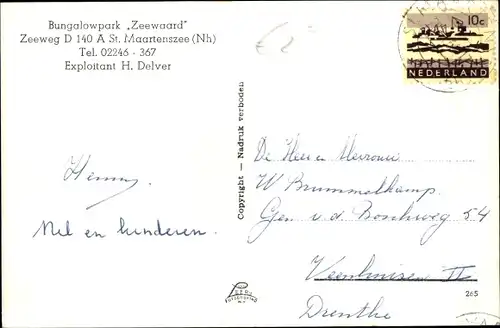 Bungalowpark „Zeewaard"
Zeeweg D 140 A St. Maartenszee (Nh)
Tel. 02246 - 367
Exploitant H. Delver
€2
10c
NEDERLAND
Henny.
Nel en kinderen.
Copyright — Nadruk verboden
De Heer en Mevrouw
W Brummelkamp.
Gen v.d. Boschweg 54
Veenhuizen II
Drenthe
265